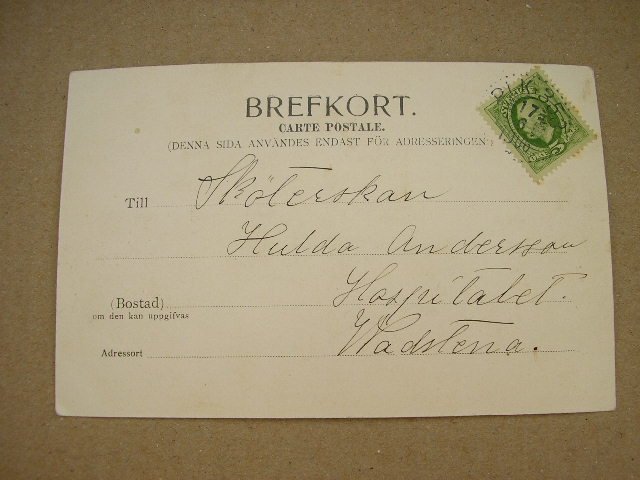 BREFKORT.
CARTE POSTALE.
(DENNA SIDA ANVÄNDES ENDAST FÖR ADRESSERINGEN.)
Till Sköterskan
Hulda Andersson
(Bostad) Hospitalet.
om den kan uppgifvas
Adressort Wadstena.
17